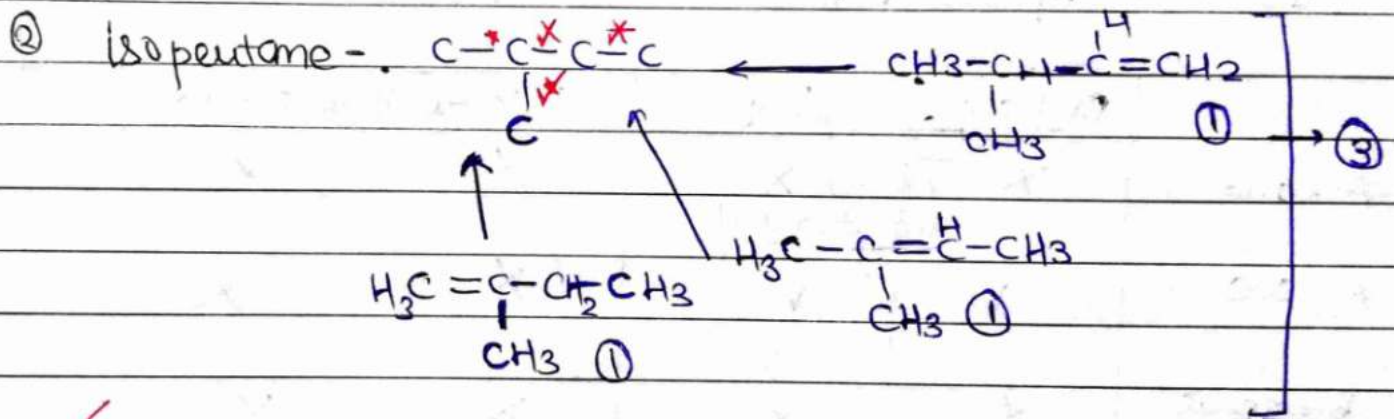 ② isopentane - . C-C-C-C ← CH3-CH-C=CH2
H
C CH3 ① → ③
H3C=C-CH2-CH3 H3C-C=C-CH3
H
CH3 ① CH3 ①